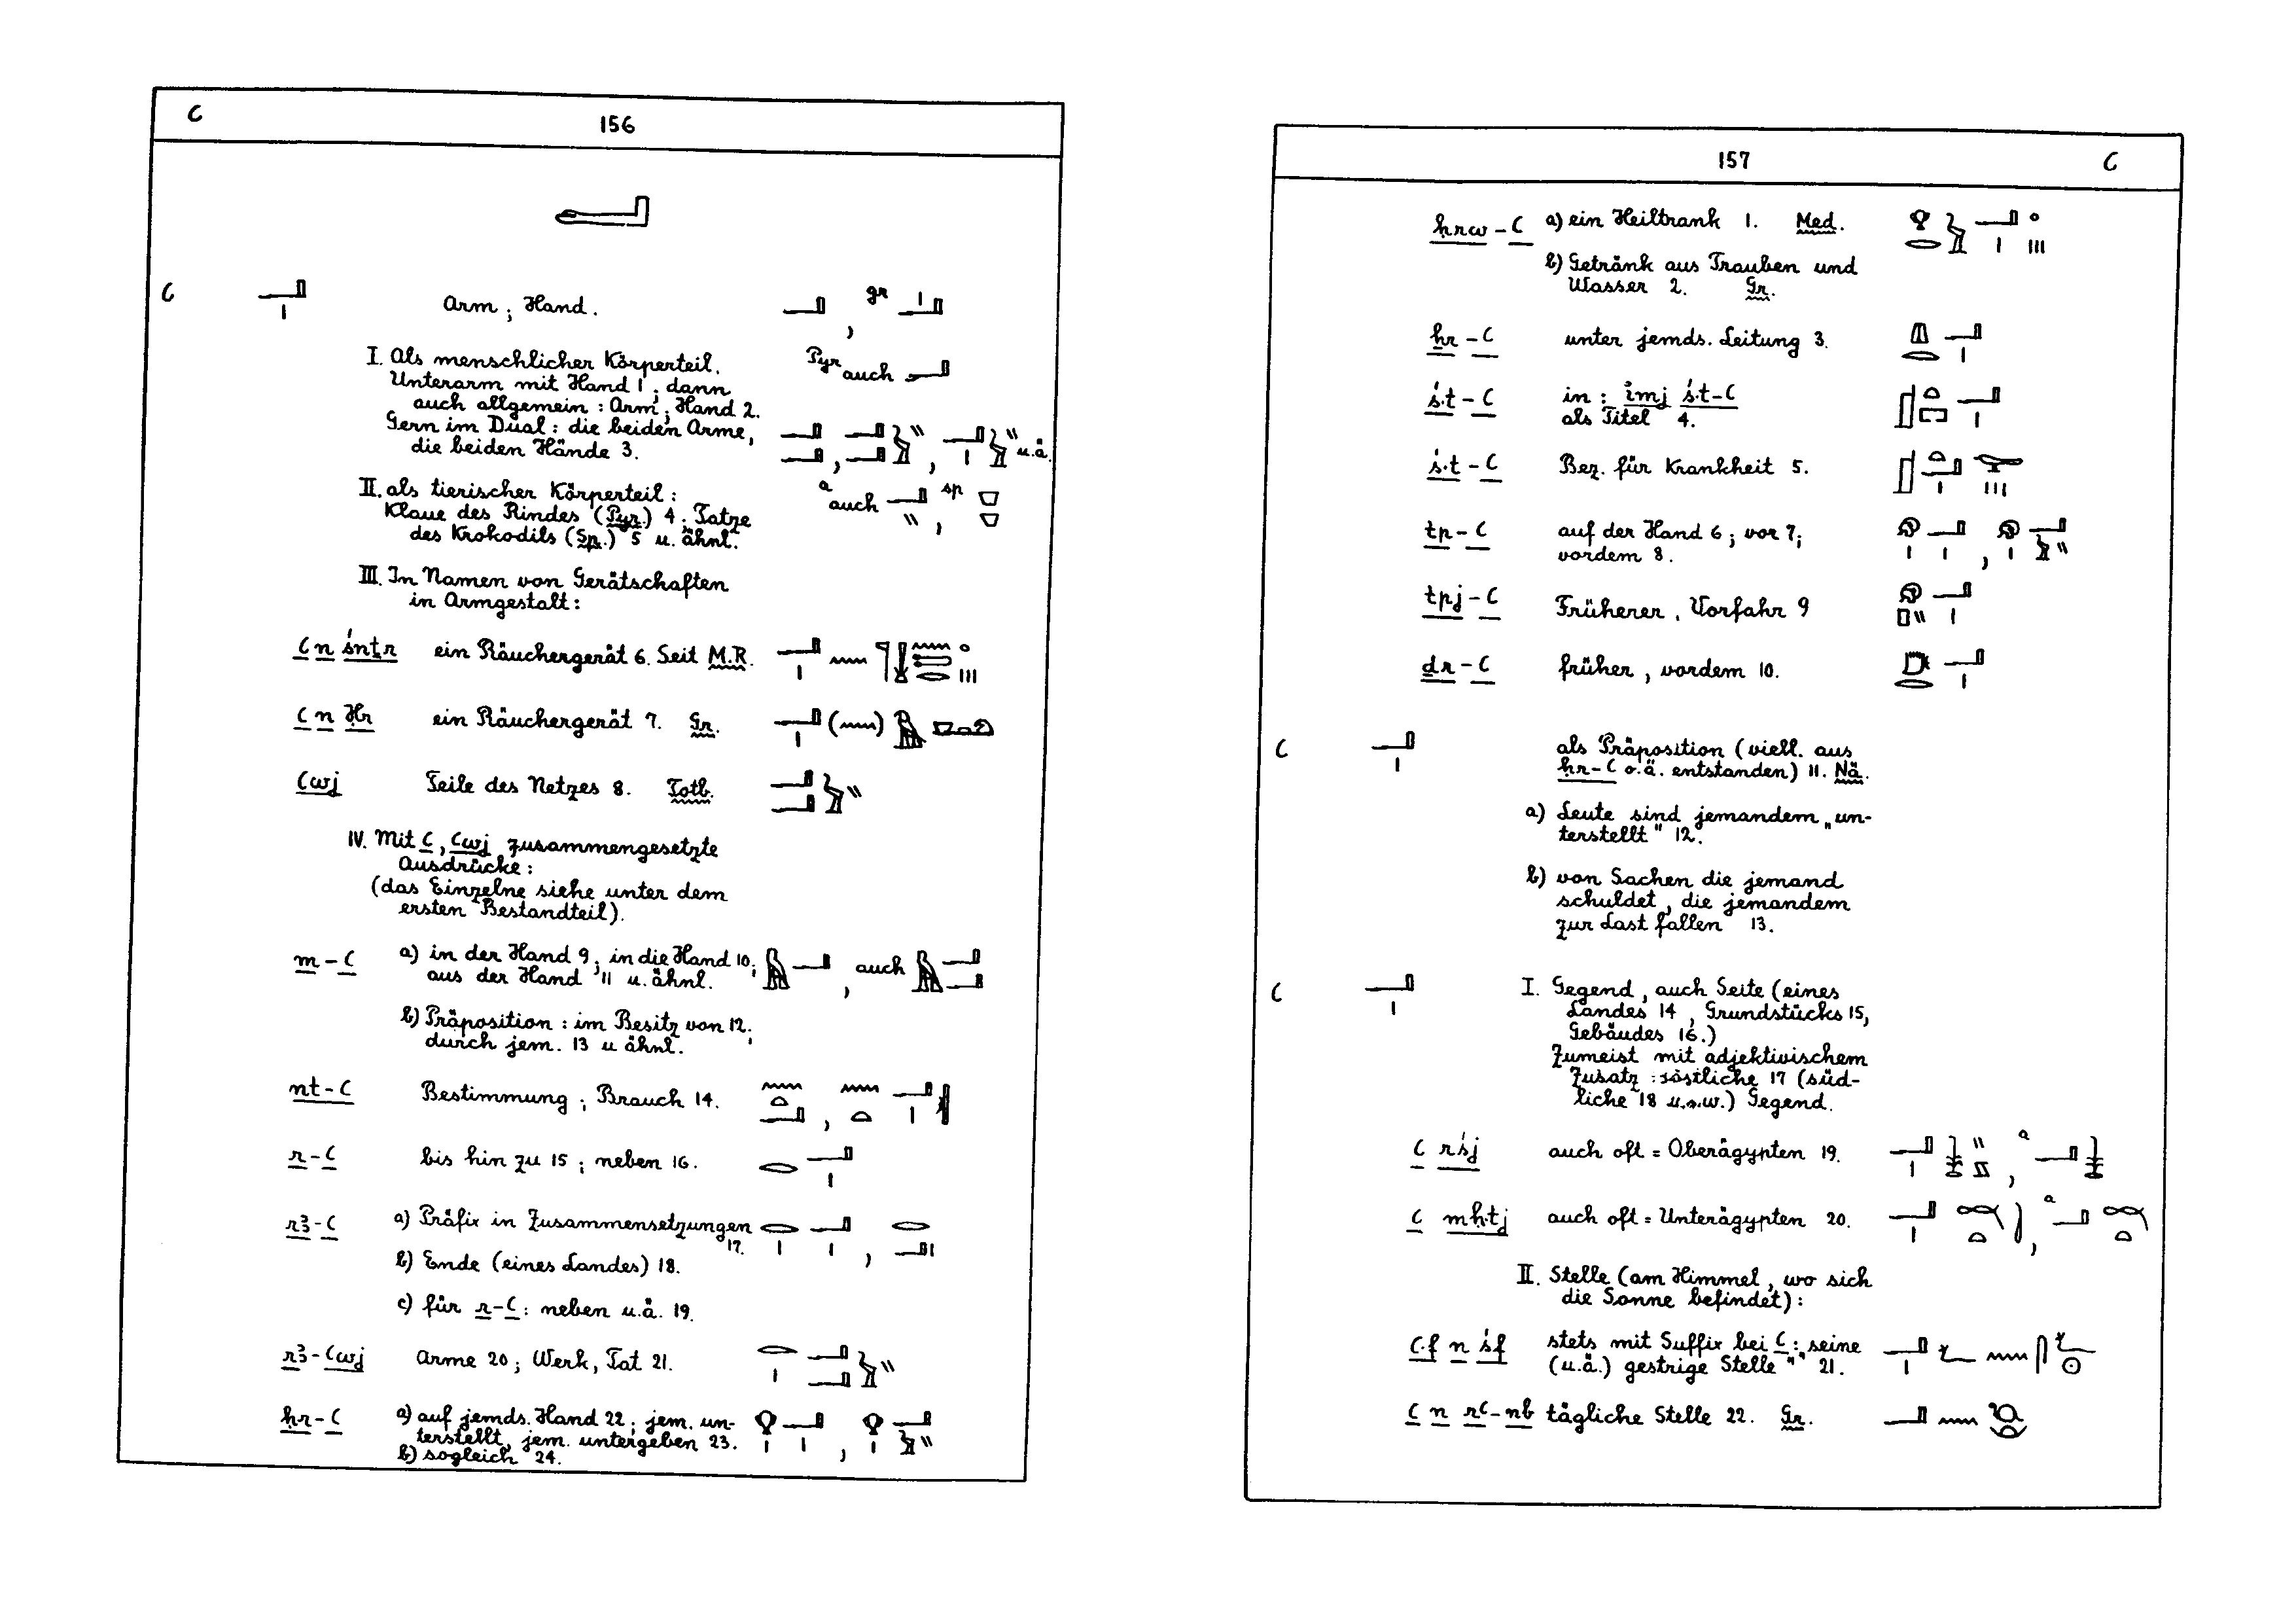 C 156
C Arm; Hand. gr
I. Als menschlicher Körperteil. Pyr auch
Unterarm mit Hand 1; dann
auch allgemein: Arm; Hand 2.
Gern im Dual: die beiden Arme,
die beiden Hände 3. u.ä.
II. als tierischer Körperteil: a auch sp
Klaue des Rindes (Pyr.) 4. Tatze
des Krokodils (Sp.) 5 u. ähnl.
III. In Namen von Gerätschaften
in Armgestalt:
C n śnṯr ein Räuchergerät 6. Seit M.R.
C n Ḥr ein Räuchergerät 7. Gr.
Cwj Teile des Netzes 8. Totb.
IV. Mit C, Cwj zusammengesetzte
Ausdrücke:
(das Einzelne siehe unter dem
ersten Bestandteil).
m-C a) in der Hand 9; in die Hand 10;
aus der Hand 11 u. ähnl. auch
b) Präposition: im Besitz von 12;
durch jem. 13 u ähnl.
nt-C Bestimmung; Brauch 14.
r-C bis hin zu 15; neben 16.
rꜣ-C a) Präfix in Zusammensetzungen
17.
b) Ende (eines Landes) 18.
c) für r-C: neben u.ä. 19.
rꜣ-Cwj Arme 20; Werk, Tat 21.
ḥr-C a) auf jemds. Hand 22; jem. un-
terstellt, jem. untergeben 23.
b) sogleich 24.
157 C
ḥrw-C a) ein Heiltrank 1. Med.
b) Getränk aus Trauben und
Wasser 2. Gr.
ẖr-C unter jemds. Leitung 3.
ś.t-C in: imj ś.t-C
als Titel 4.
ś.t-C Bez. für Krankheit 5.
tp-C auf der Hand 6; vor 7;
vordem 8.
tpj-C Früherer, Vorfahr 9
ḏr-C früher, vordem 10.
C als Präposition (viell. aus
ẖr-C o.ä. entstanden) 11. Nä.
a) Leute sind jemandem „un-
terstellt" 12.
b) von Sachen die jemand
schuldet, die jemandem
zur Last fallen 13.
C I. Gegend, auch Seite (eines
Landes 14, Grundstücks 15,
Gebäudes 16.)
Zumeist mit adjektivischem
Zusatz: östliche 17 (süd-
liche 18 u.s.w.) Gegend.
C rśj auch oft = Oberägypten 19. a
C mḥ.tj auch oft = Unterägypten 20. a
II. Stelle (am Himmel, wo sich
die Sonne befindet):
C.f n śf stets mit Suffix bei C: seine
(u.ä.) gestrige Stelle " 21.
C n rC-nb tägliche Stelle 22. Gr.